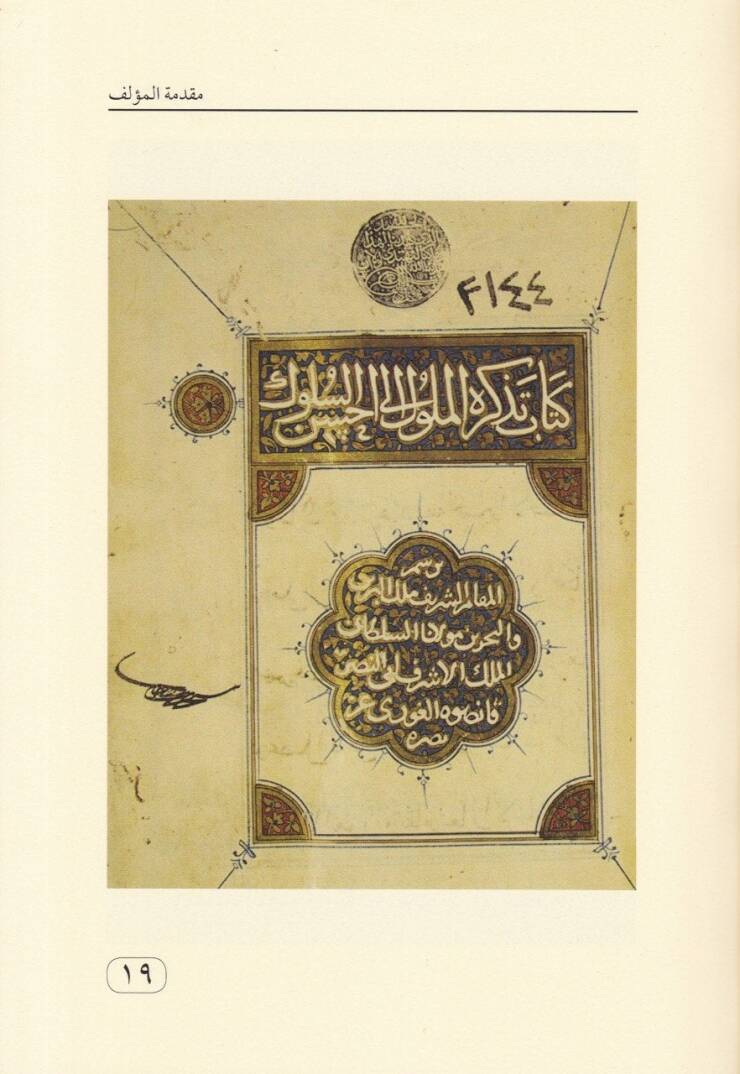 مقدمة المؤلف
٢١٤٤
كتاب تذكرة الملوك الى احسن السلوك
برسم
المقام الشريف ملك البرين
والبحرين مولانا السلطان
الملك الاشرف ابي النصر
قانصوه الغوري عز
نصره
١٩